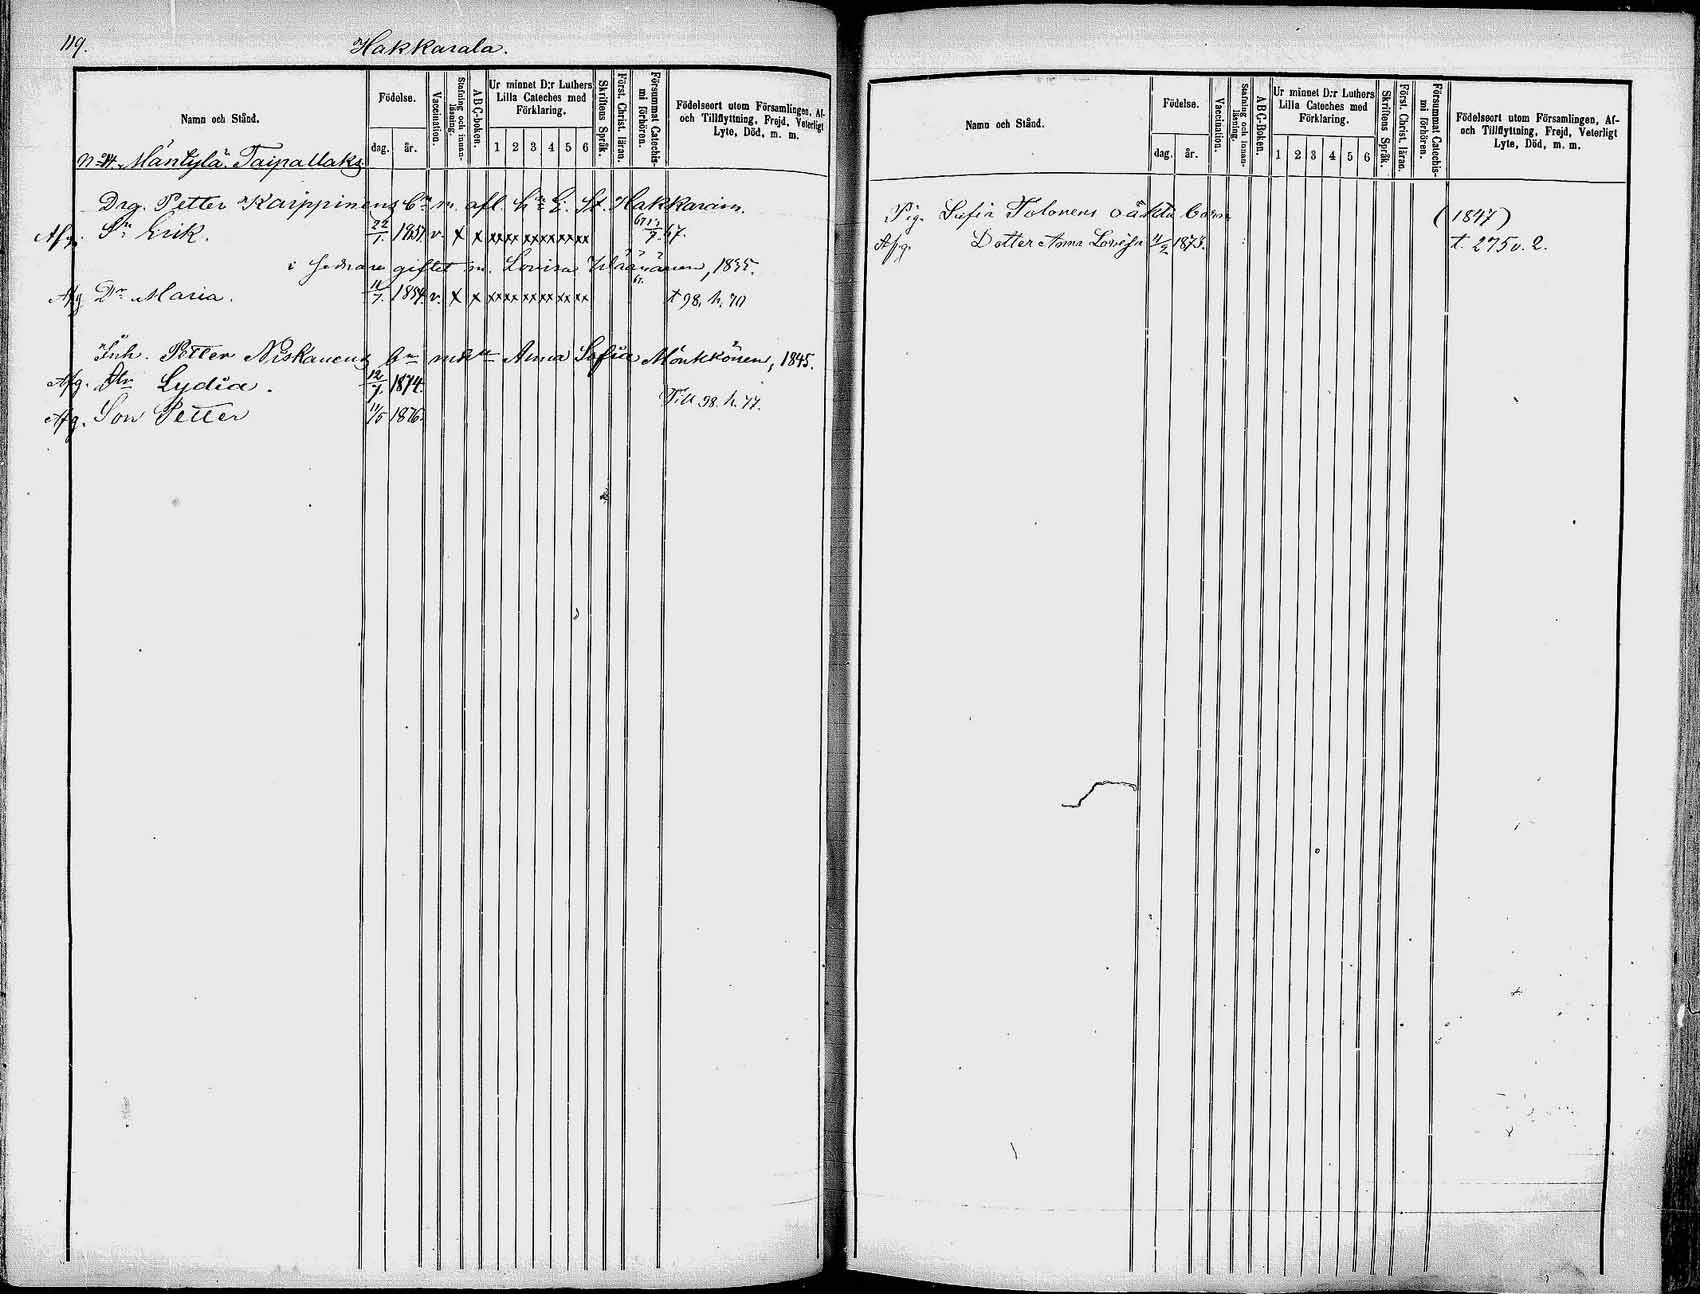 119. Hakkarala.
Namn och Stånd.
Födelse.
dag.
år.
Vaccination.
Stafning och innanläsning.
ABC-boken.
Ur minnet D:r Luthers Lilla Cateches med Förklaring.
1 2 3 4 5 6
Skriftens Språk.
Först. Christ. läran.
Försummat Catechismi förhören.
Födelseort utom Församlingen, Af- och Tillflyttning, Frejd, Veterligt Lyte, Död, m. m.
N:o 24. Mäntylä. Taipallaks
Drg. Petter Karppinens bn m. afl. E. St. Hakkarain.
Afg. Sn Erik. 22/1. 1851. v. x x xx xx xx xx xx xx 67
i sednare giftet m. Lovisa Wäänänen, 1835.
Afg Dr Maria. 11/7. 1854. v. x x xx xx xx xx xx xx t 98. h. 70
Inh. Petter Niskanens bn Anna Sofia Mönkkönen, 1845.
Afg. Dtr Lydia. 12/7. 1874.
Till 98. h. 77.
Afg. Son Petter 11/5 1876.
Namn och Stånd.
Födelse.
dag.
år.
Vaccination.
Stafning och innanläsning.
ABC-Boken.
Ur minnet D:r Luthers Lilla Cateches med Förklaring.
1 2 3 4 5 6
Skriftens Språk.
Först. Christ. läran.
Försummat Catechismi förhören.
Födelseort utom Församlingen, Af- och Tillflyttning, Frejd, Veterligt Lyte, Död, m. m.
Pig. Sofia Tolonens oäkta barn (1847)
Afg. Dotter Anna Lovisa 11/2 1873. t. 275 v. 2.